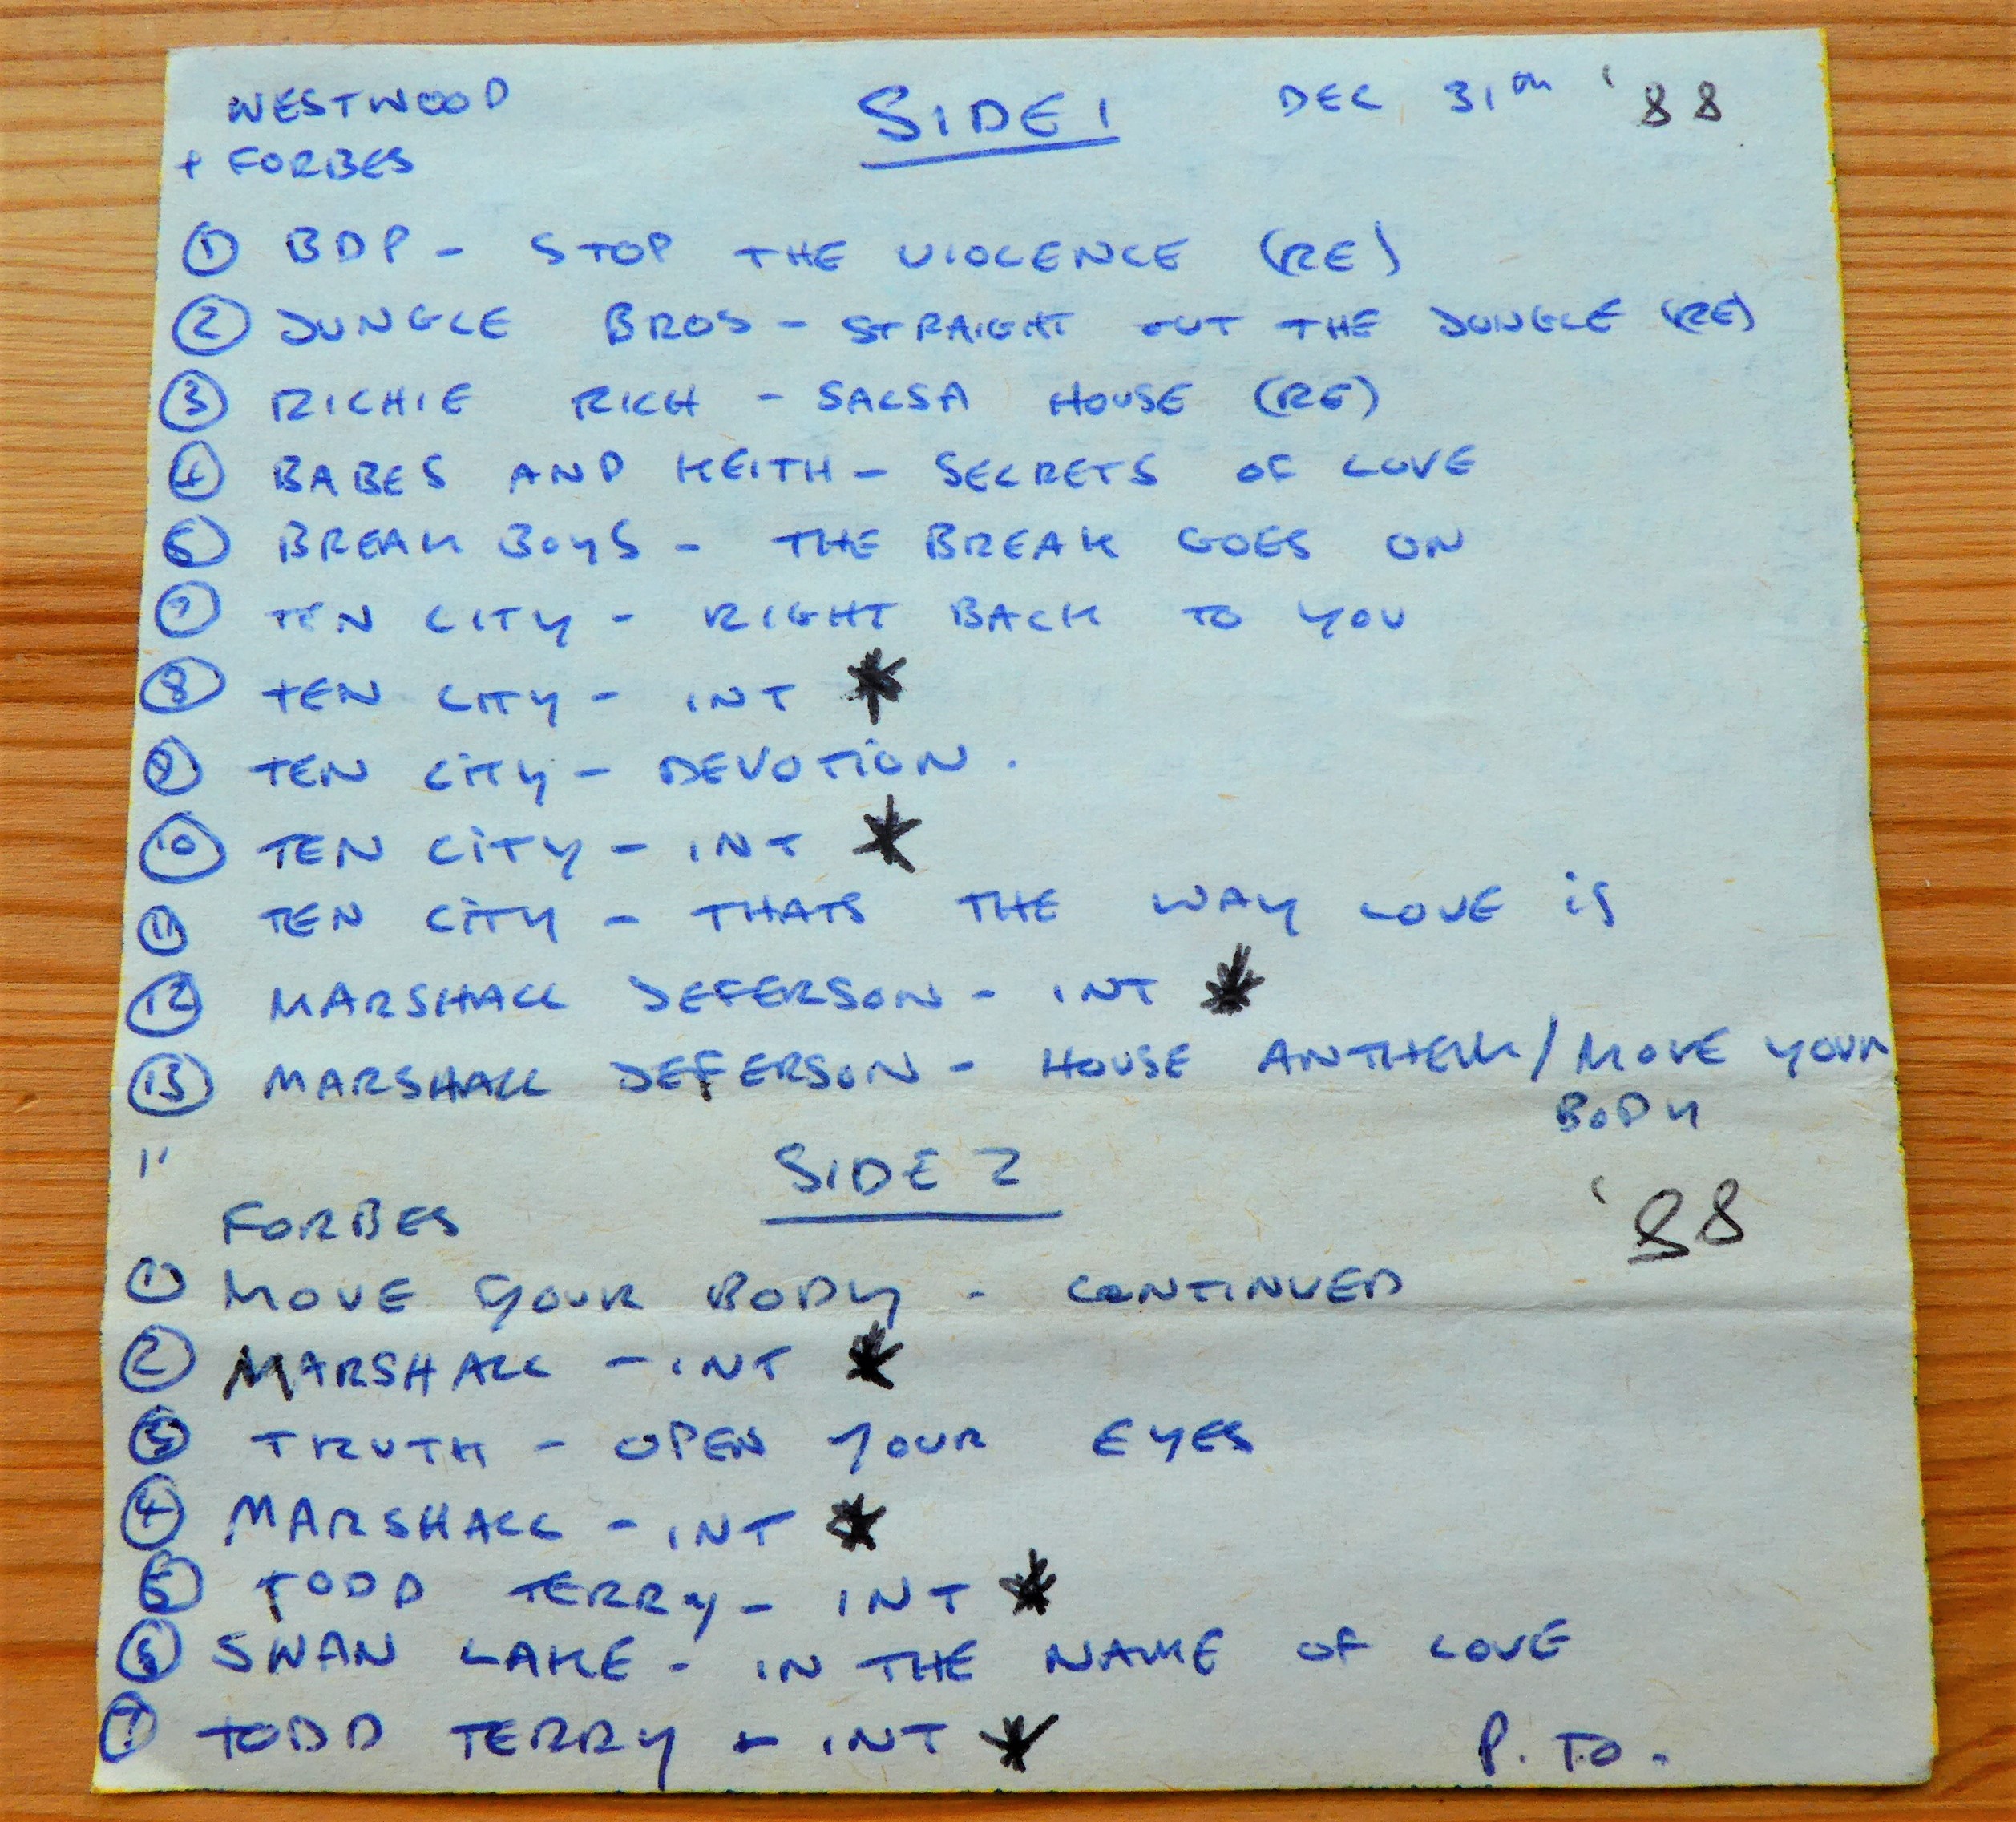 WESTWOOD
+ FORBES
SIDE 1
DEC 31TH '88
① BDP - STOP THE VIOLENCE (RE)
② JUNGLE BROS - STRAIGHT OUT THE JUNGLE (RE)
③ RICHIE RICH - SALSA HOUSE (RE)
④ BABES AND KEITH - SECRETS OF LOVE
⑤ BREAK BOYS - THE BREAK GOES ON
⑦ TEN CITY - RIGHT BACK TO YOU
⑧ TEN CITY - INT *
⑨ TEN CITY - DEVOTION.
⑩ TEN CITY - INT *
⑪ TEN CITY - THATS THE WAY LOVE IS
⑫ MARSHALL JEFERSON - INT *
⑬ MARSHALL JEFERSON - HOUSE ANTHEM / MOVE YOUR
BODY
"
SIDE 2
'88
FORBES
① MOVE YOUR BODY - CONTINUED
② MARSHALL - INT *
③ TRUTH - OPEN YOUR EYES
④ MARSHALL - INT *
⑤ TODD TERRY - INT *
⑥ SWAN LAKE - IN THE NAME OF LOVE
⑦ TODD TERRY - INT *
P.T.O.